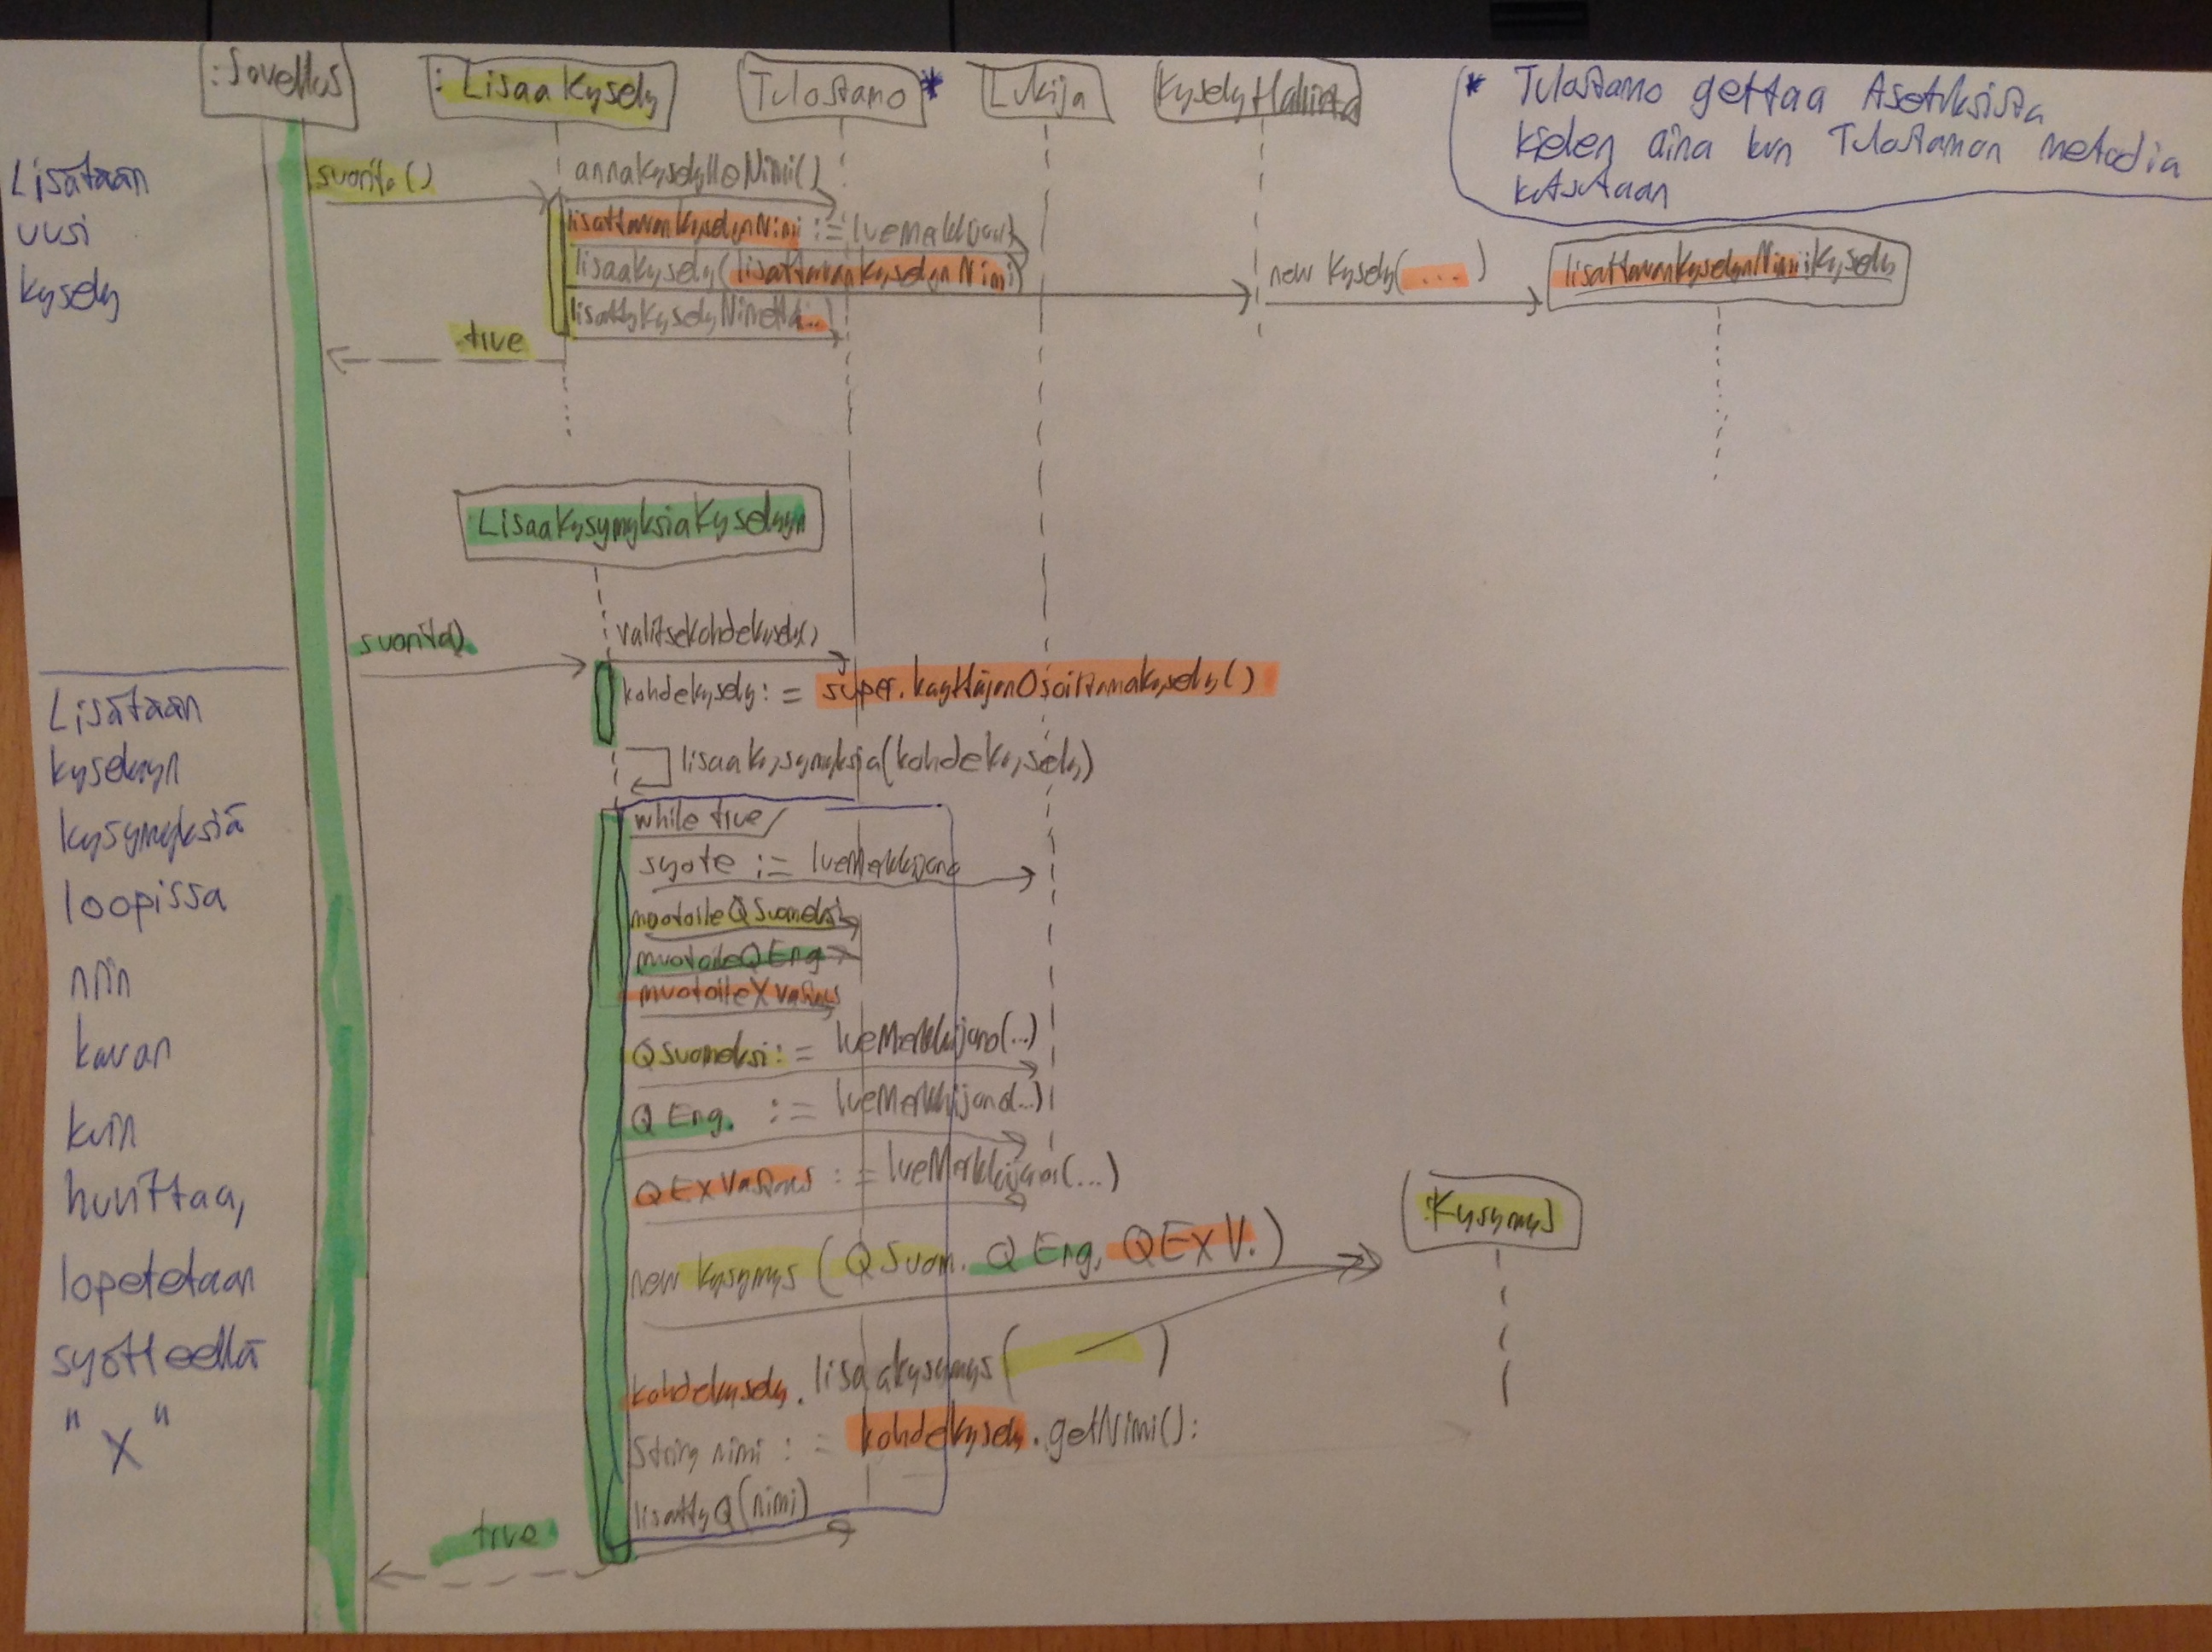 :Sovellus
:LisaaKysely
Tulostamo *
Lukija
KyselyHallinta
* Tulostamo gettaa Asetuksista
kielen aina kun Tulostamon metodia
kutsutaan
Lisätään
uusi
kysely
suorita()
annaKyselylleNimi()
lisattavanKyselynNimi := lueMerkkijono()
lisaaKysely(lisattavanKyselynNimi)
new Kysely(....)
lisattavanKyselynNimi:Kysely
lisattyKyselyNimelta(...)
true
LisaaKysymyksiaKyselyyn
suorita()
valitseKohdekysely()
kohdekysely := super.kayttajanOsoittamaKysely()
lisaaKysymyksia(kohdeKysely)
Lisätään
kyselyyn
kysymyksiä
loopissa
niin
kauan
kuin
huvittaa,
lopetetaan
syötteellä
"X"
while true
syote := lueMerkkijono
muotoileQSuomeksi
muotoileQEng
muotoileXVastaus
QSuomeksi := lueMerkkijono(...)
QEng. := lueMerkkijono(...)
QExVastaus := lueMerkkijono(...)
:Kysymys
new Kysymys (QSuom. QEng, QExV.)
kohdekysely.lisaakysymys( )
String nimi := kohdekysely.getNimi():
lisattyQ(nimi)
true